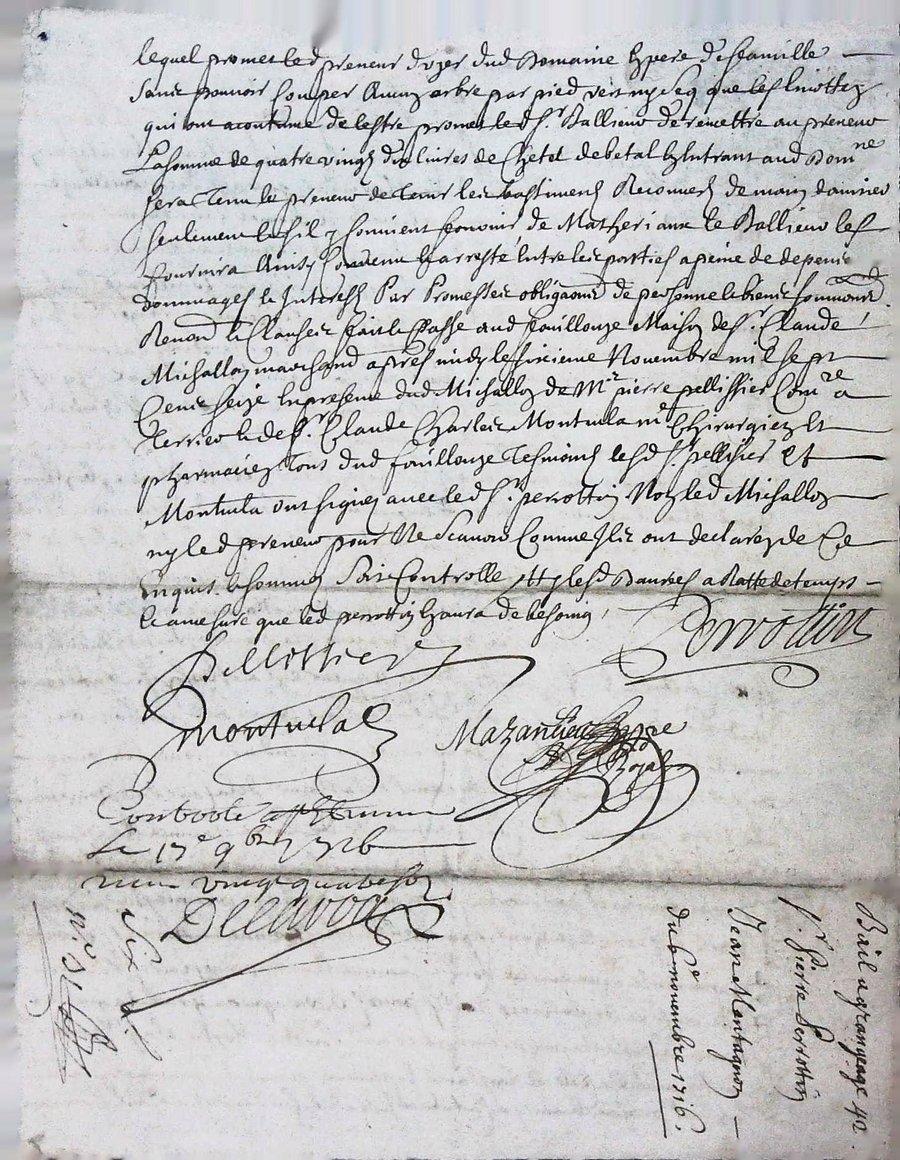 lequel promet led preneur dvzer dud Domaine En pere de famille
sans pouvoir Couper Aucun arbre par pied vert ny Seq que les
qui ont acoutume de lestre promet led Sr. Ballieur de remettre au preneur
La somme de quatre vingt dix livres de Chetel de betal En Entrant aud Domne
sera Tenu le preneur de Tenir les bastiments de main
seulement et sil y Convient de Matheriaux le Ballieur les
fournira Ainsy Convenu Et arresté Entre les parties a peine de depens
dommages et Interests Par Promesses obligaons de personne et biens
Renond et Clauses fait et Passe aud fouillouze Maison de Sr. Claude
Michallon marchand apres midy le sixieme Novembre mil sept
Cens seize En presence dud Michallon de Mr pierre pellissier Comre a
Terrier et de Sr. Claude Charles Montucla md Chirurgien Et
pharmacien Tous dud fouillouze Tesmoins lesd Sr. pellissier Et
Montucla ont signez avec led Sr. perrottin Non led Michallon
ny led preneur pour Ne Scavoir Comme Ils ont declarez de Ce
Enquis et sommez Soit Controlle
et a mesure que led perrottin En aura de besoing
Perrotin
Pellissier
Montucla
Mazandieu
Royal
Controole a
Le 17e 9bre 1716
vingt quatre sols
Delavoa
Six
Bail a grangeage
Sr. Pierre Perrottin
Jean Montagnon
du 6e novembre 1716.